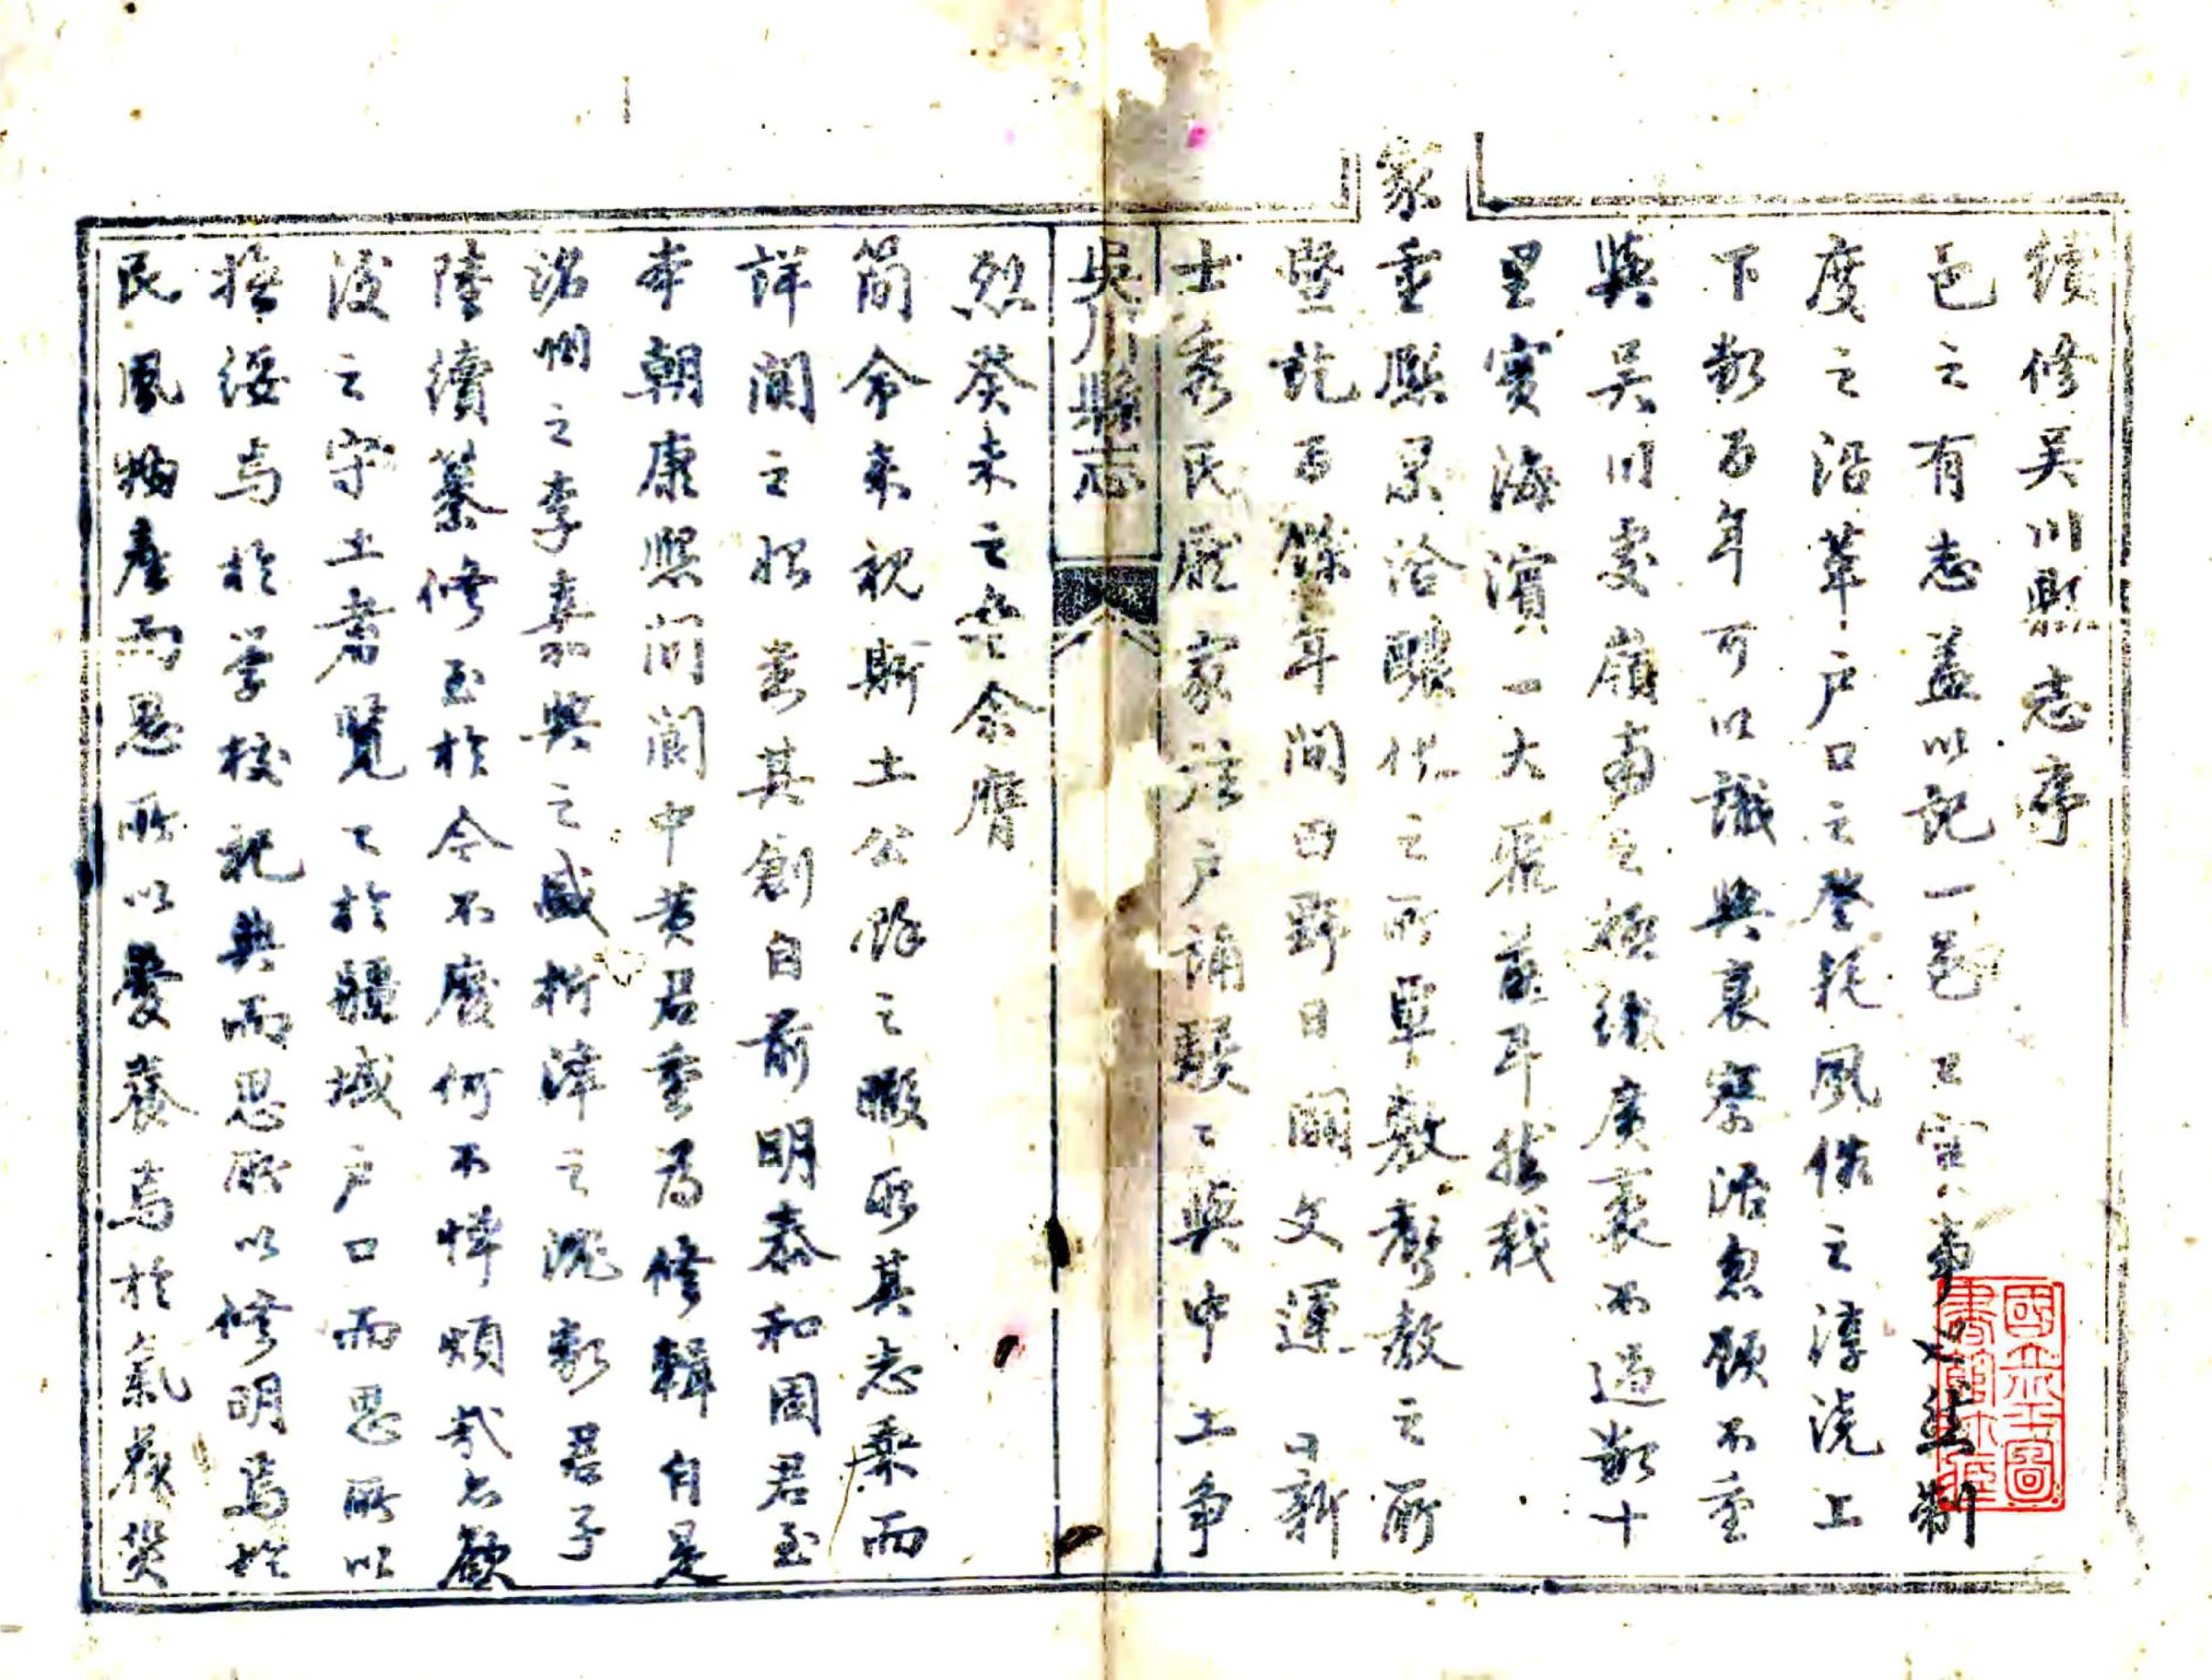 續修吴川縣志序
邑之有志盖以記一邑之實事也然制
度之沿革户口之登耗風俗之淳澆上
下數百年可以識興衰察治忽顧不重
與吴川處嶺南之極纖廣袤不過數十
里實海濱一大藪耳㧞我
家重熙累洽醲化之所覃敷聲教之所
暨訖百餘年間田野日闢文運日新
士秀民厖家詩户誦駸〻與中土爭
吳川縣志
烈癸未之冬余膺
簡命來視斯土公餘之暇取其志乘而
詳閱之知其創自前明泰和周君至
本朝康熙間閬中黄君重為修輯自是
洺州之李嘉興之盛析津之沈數君子
陸續纂修至於今不廢何不憚煩哉亦欲
後之守土者覽〻於疆域户口而思所以
撫綏焉於學校祀典而思所以修明焉於
民風物產而思所以愛養焉於氣